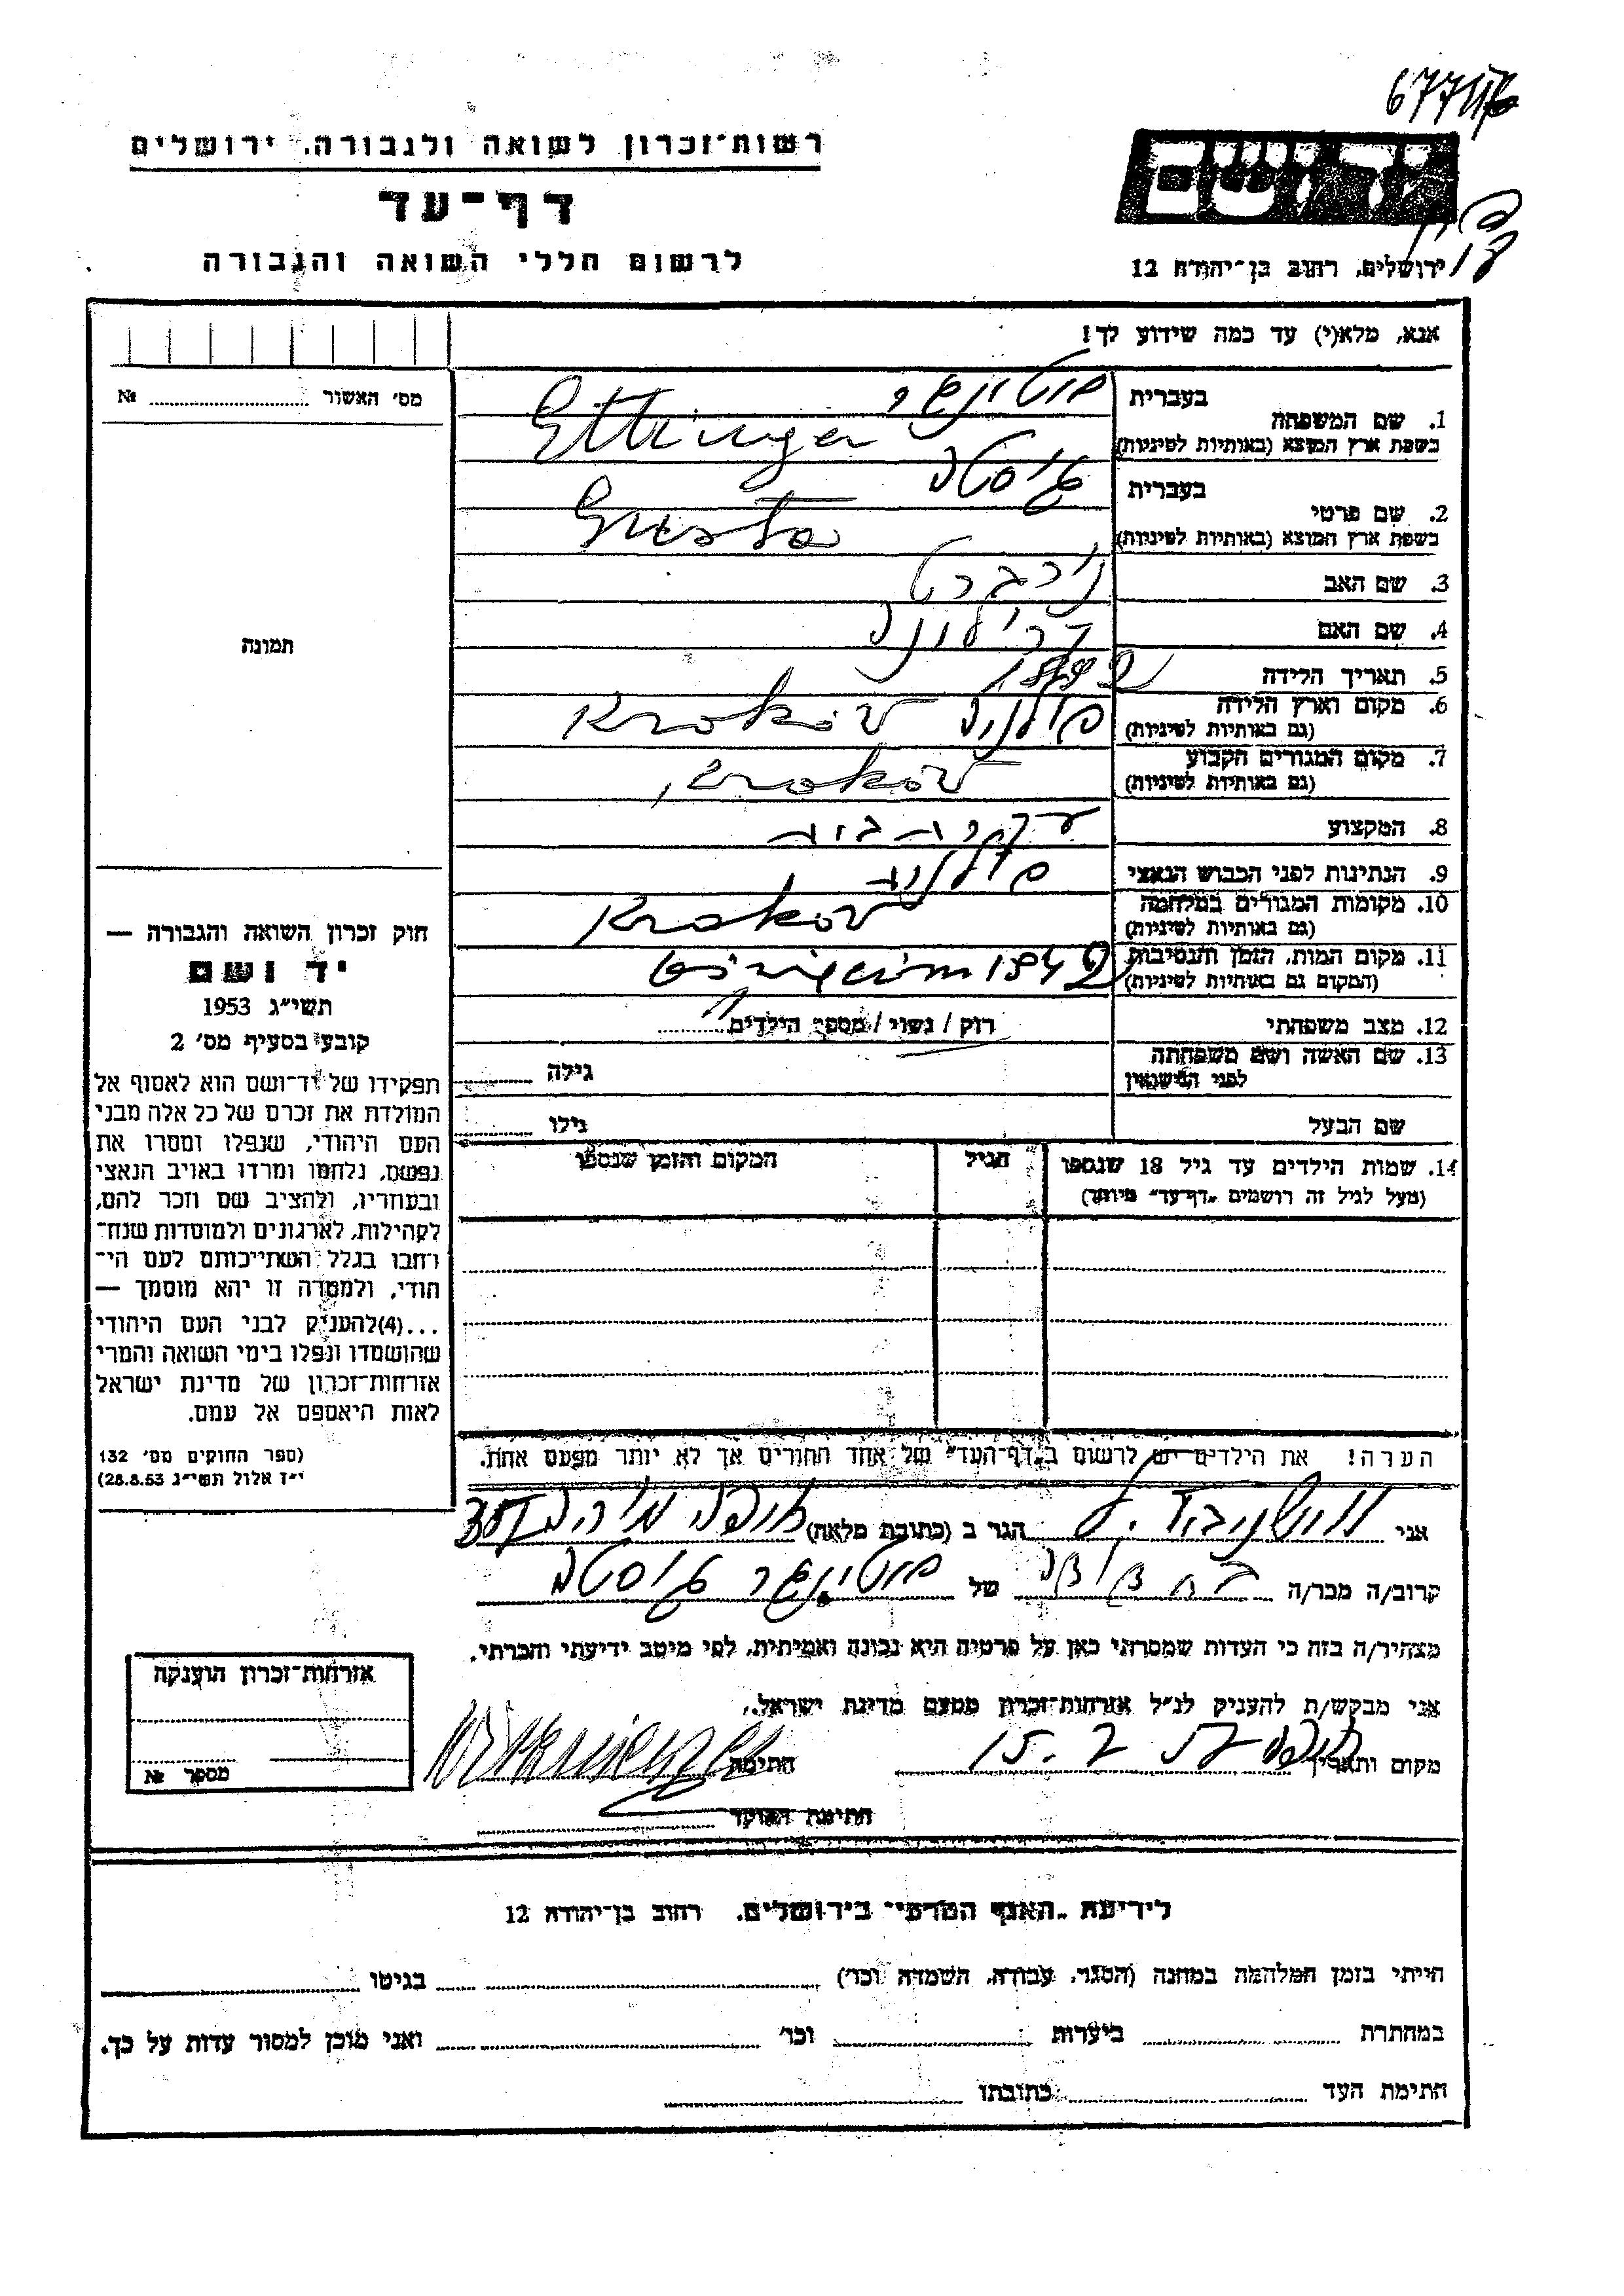 רשות־זכרון לשואה ולגבורה, ירושלים
דף־עד
לרשום חללי השואה והגבורה
יד ושם
ירושלים, רחוב בן־יהודה 12
אנא, מלא(י) עד כמה שידוע לך!
מס' האשור № 
1. שם המשפחה
בעברית
בשפת ארץ המוצא (באותיות לטיניות) Ettinger
2. שם פרטי
בעברית גוסטה
בשפת ארץ המוצא (באותיות לטיניות) Gusta
3. שם האב
4. שם האם
5. תאריך הלידה
6. מקום וארץ הלידה פולניה Krakov
(גם באותיות לטיניות)
7. מקום המגורים הקבוע Krakov
(גם באותיות לטיניות)
8. המקצוע עקרת בית
9. הנתינות לפני הכבוש הנאצי פולניה
10. מקומות המגורים במלחמה Krakov
(גם באותיות לטיניות)
11. מקום המות, הזמן והנסיבות 1942
(המקום גם באותיות לטיניות)
12. מצב משפחתי רוק / נשוי / מספר הילדים
13. שם האשה ושם משפחתה
לפני הנישואין גילה
שם הבעל גילו
14. שמות הילדים עד גיל 18 שנספו הגיל המקום והזמן שנספו
(מעל לגיל זה רושמים "דף־עד" מיוחד)
תמונה
חוק זכרון השואה והגבורה —
יד ושם
תשי"ג 1953
קובע בסעיף מס' 2
תפקידו של יד־ושם הוא לאסוף אל
המולדת את זכרם של כל אלה מבני
העם היהודי, שנפלו ומסרו את
נפשם, נלחמו ומרדו באויב הנאצי
ובעוזריו, ולהציב שם וזכר להם,
לקהילות, לארגונים ולמוסדות שנח־
רחבו בגלל השתייכותם לעם הי־
הודי, ולמטרה זו יהא מוסמך —
...(4)להעניק לבני העם היהודי
שהושמדו ונפלו בימי השואה והמרי
אזרחות־זכרון של מדינת ישראל
לאות היאספם אל עמם.
(ספר החוקים מס' 132
י"ז אלול תשי"ג 28.8.53)
הערה! את הילדים יש לרשום ב"דף־העד" של אחד ההורים אך לא יותר מפעם אחת.
אני הגר ב (כתובת מלאה)
קרוב/ה מכר/ה של אטינגר גוסטה
מצהיר/ה בזה כי העדות שמסרתי כאן על פרטיה היא נכונה ואמיתית, לפי מיטב ידיעתי והכרתי.
אני מבקש/ת להעניק לנ"ל אזרחות־זכרון מטעם מדינת ישראל.
מקום ותאריך 15. 2 57 חתימה
חתימת הפוקד
אזרחות־זכרון הוענקה
מספר №
לידיעת "האגף המדעי" בירושלים, רחוב בן־יהודה 12
הייתי בזמן המלחמה במחנה (הסגר, עבודה, השמדה וכו') בגיטו
במחתרת ביערות וכו' ואני מוכן למסור עדות על כך.
חתימת העד כתובתו